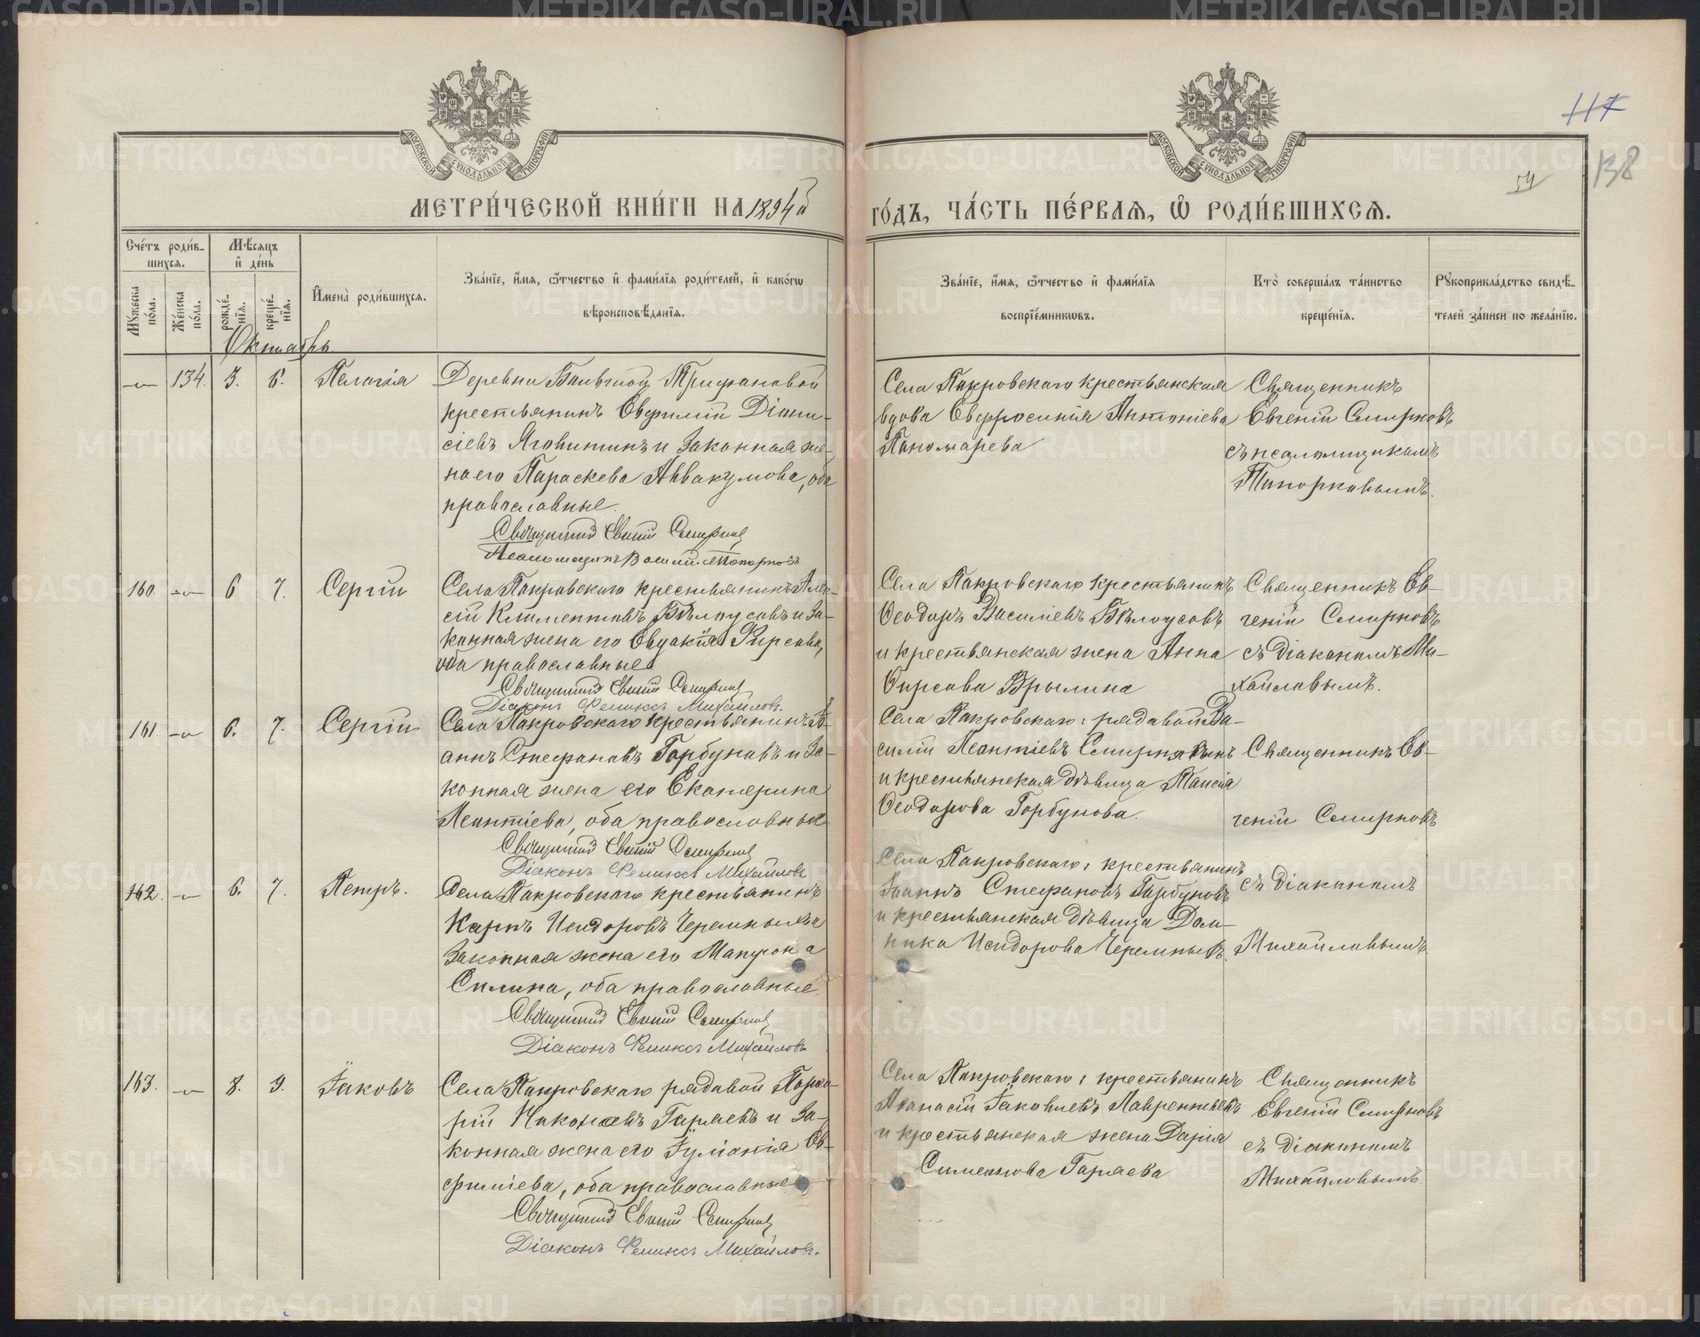 117
138
54
МЕТРИ́ЧЕСКОЙ КНИ́ГИ НА 1894й
ГО́ДЪ, ЧА́СТЬ ПЕ́РВАЯ, Ѡ РОДИ́ВШИХСЯ.
Сче́тъ роди́в-
шихся.
Мѣ́сяцъ
и҆ де́нь
Мꙋ́жеска
по́ла.
Же́нска
по́ла.
рожде́-
нїя.
креще́-
нїя.
И҆мена̀ роди́вшихся.
Зва́нїе, и҆́мя, ѻ҆́тчество и҆ фами́лїя роди́телей, и҆ како́гѡ
вѣроисповѣ́данїя.
Зва́нїе, и҆́мя, ѻ҆́тчество и҆ фами́лїя
воспрїе́мникѡвъ.
Кто̀ соверша́лъ та́инство
креще́нїя.
Рꙋкоприкла́дство свидѣ́-
телей за́писи по жела́нїю.
Октябрь.
134. 3. 6. Пелагія
Деревни Трифановой
крестьянинъ Евфимій Діони-
сіевъ Яговитинъ и законная же-
на его Параскева Аввакумова, оба
православные.
Священникъ Евгеній Смирновъ
Псаломщикъ Василій Топорковъ
Села Покровскаго крестьянская
вдова Евфросинія Антоніева
Пономарева
Священникъ
Евгеній Смирновъ
съ псаломщикомъ
Топорковымъ.
160. 6 7. Сергій
Села Покровскаго крестьянинъ Алек-
сій Климентовъ Бѣлоусовъ и за-
конная жена его Евдокія Фирсова,
оба православные
Священникъ Евгеній Смирновъ
Діаконъ Феликсъ Михайловъ.
Села Покровскаго крестьянинъ
Ѳеодоръ Василіевъ Бѣлоусовъ
и крестьянская жена Анна
Фирсова Брылина
Священникъ Ев-
геній Смирновъ
съ діакономъ Ми-
хайловымъ.
161. 6. 7. Сергій
Села Покровскаго крестьянинъ Іо-
аннъ Стефановъ Горбуновъ и за-
конная жена его Екатерина
Леонтіева, оба православные
Священникъ Евгеній Смирновъ
Діаконъ Феликсъ Михайловъ
Села Покровскаго: рядовой Ва-
силій Леонтіевъ
и крестьянская дѣвица Таисія
Ѳеодорова Горбунова.
Священникъ Ев-
геній Смирновъ
съ діакономъ
Михайловымъ.
162. 6. 7. Петръ.
Села Покровскаго крестьянинъ
Карпъ Исидоровъ Черемныхъ и
законная жена его
Силина, оба православные.
Священникъ Евгеній Смирновъ
Діаконъ Феликсъ Михайловъ
Села Покровскаго: крестьянинъ
Іоаннъ Стефановъ Горбуновъ
и крестьянская дѣвица Дом-
ника Исидорова Черемныхъ.
163. 8. 9. Іаковъ
Села Покровскаго рядовой Порфи-
рій Гаряевъ и за-
конная жена его Іуліанія Ев-
фиміева, оба православные
Священникъ Евгеній Смирновъ
Діаконъ Феликсъ Михайловъ.
Села Покровскаго: крестьянинъ
Аѳанасій Іаковлевъ Лаврентьевъ
и крестьянская жена Дарія
Симеонова Гаряева
Священникъ
Евгеній Смирновъ
съ діакономъ
Михайловымъ.
METRIKI.GASO-URAL.RU